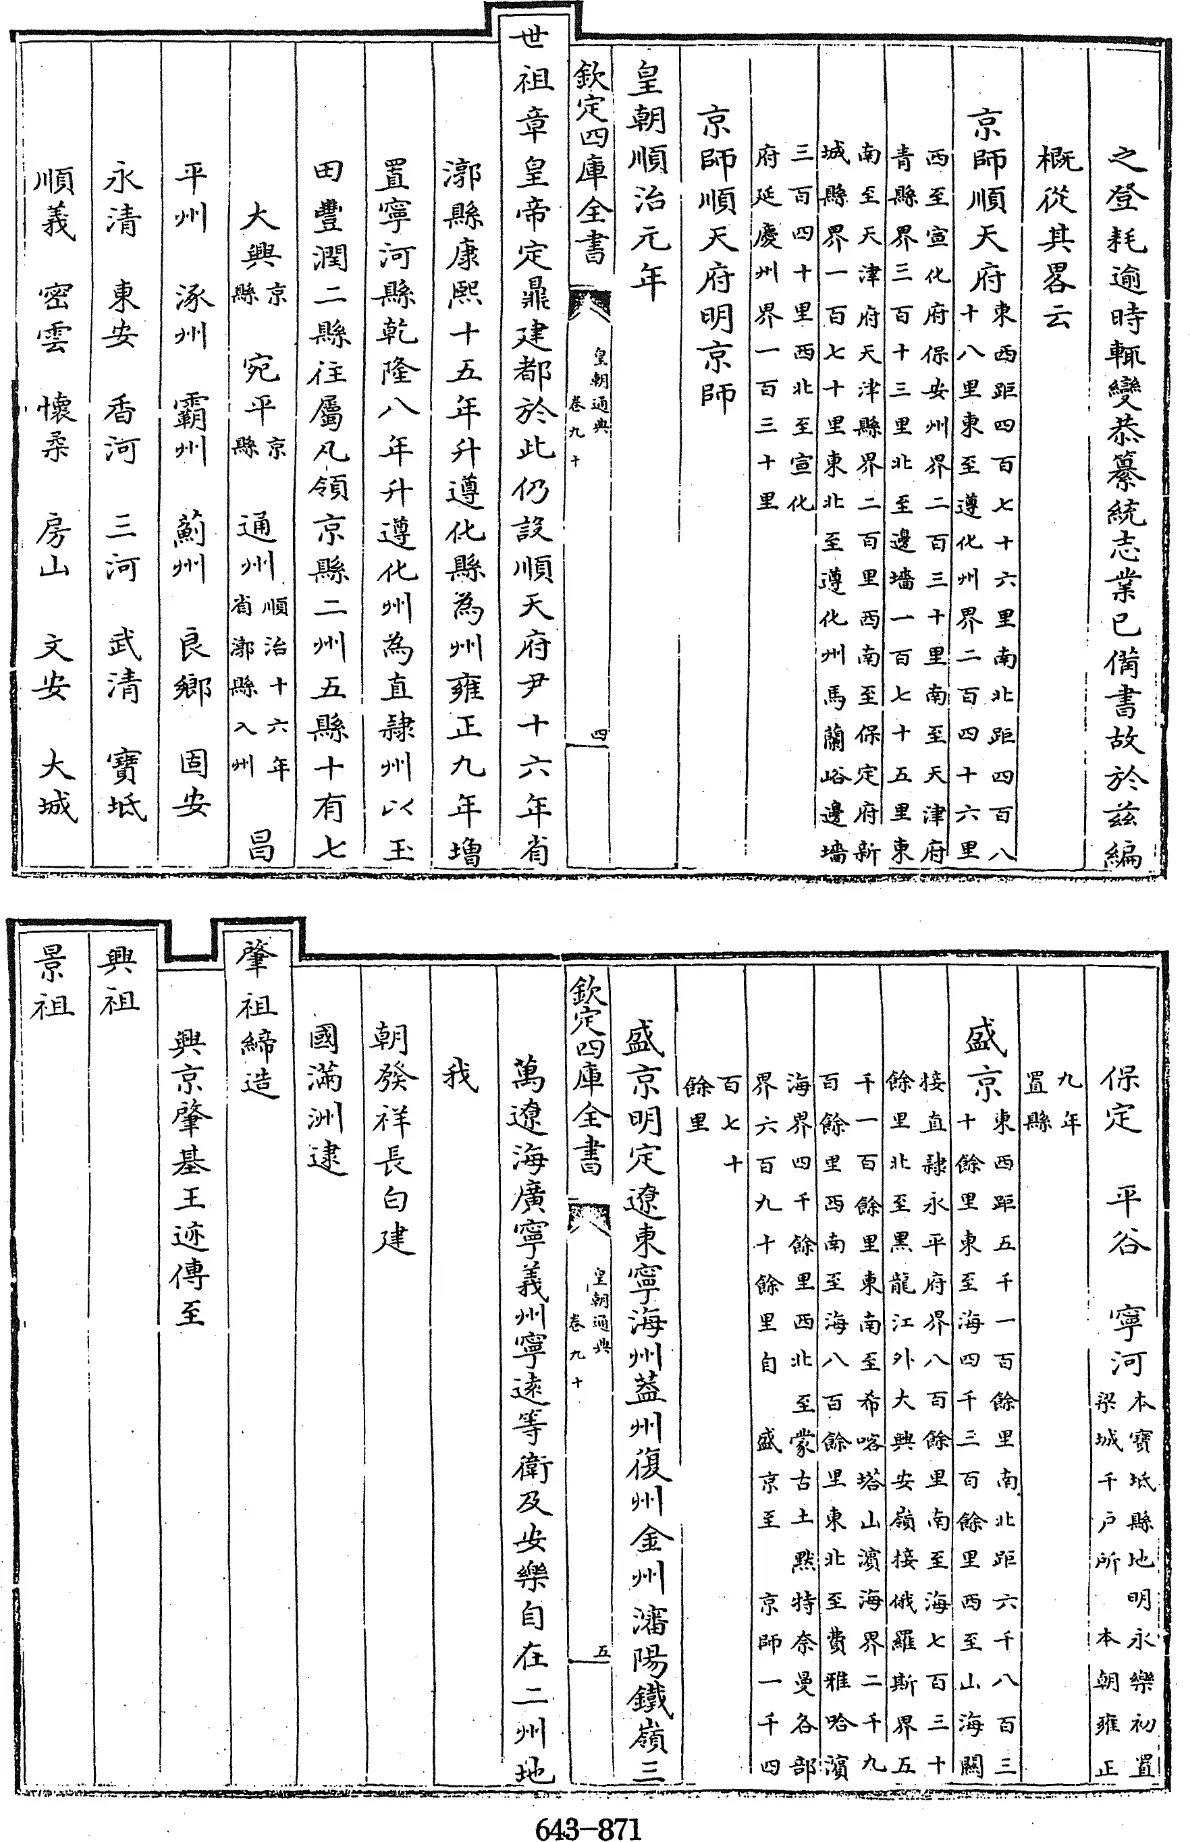 之登耗逾時輒變恭纂統志業已備書故於茲編
概從其畧云
京師順天府東西距四百七十六里南北距四百八
十八里東至遵化州界二百四十六里
西至宣化府保安州界二百三十里南至天津府
青縣界三百十三里北至邊墻一百七十五里東
南至天津府天津縣界二百里西南至保定府新
城縣界一百七十里東北至遵化州馬蘭峪邊墻
三百四十里西北至宣化
府延慶州界一百三十里
京師順天府明京師
皇朝順治元年
欽定四庫全書
皇朝通典
卷九十
四
世祖章皇帝定鼎建都於此仍設順天府尹十六年省
漷縣康熙十五年升遵化縣為州雍正九年增
置寧河縣乾隆八年升遵化州為直隸州以玉
田豐潤二縣往屬凡領京縣二州五縣十有七
大興京縣 宛平京縣 通州順治十六年省漷縣入州 昌
平州 涿州 霸州 薊州 良鄉 固安
永清 東安 香河 三河 武清 寶坻
順義 密雲 懷柔 房山 文安 大城
保定 平谷 寧河本寶坻縣地明永樂初置
梁城千户所 本朝雍正
九年
置縣
盛京東西距五千一百餘里南北距六千八百三
十餘里東至海四千三百餘里西至山海關
接直隸永平府界八百餘里南至海七百三十
餘里北至黑龍江外大興安嶺接俄羅斯界五
千一百餘里東南至希喀塔山濱海界二千九
百餘里西南至海八百餘里東北至費雅哈濱
海界四千餘里西北至蒙古土默特奈曼各部
界六百九十餘里自 盛京至 京師一千四
百七十
餘里
盛京明定遼東寧海州蓋州復州金州瀋陽鐵嶺三
欽定四庫全書
皇朝通典
卷九十
五
萬遼海廣寧義州寧遠等衛及安樂自在二州地
我
朝發祥長白建
國滿洲逮
肇祖締造
興京肇基王迹傳至
興祖
景祖
643-871